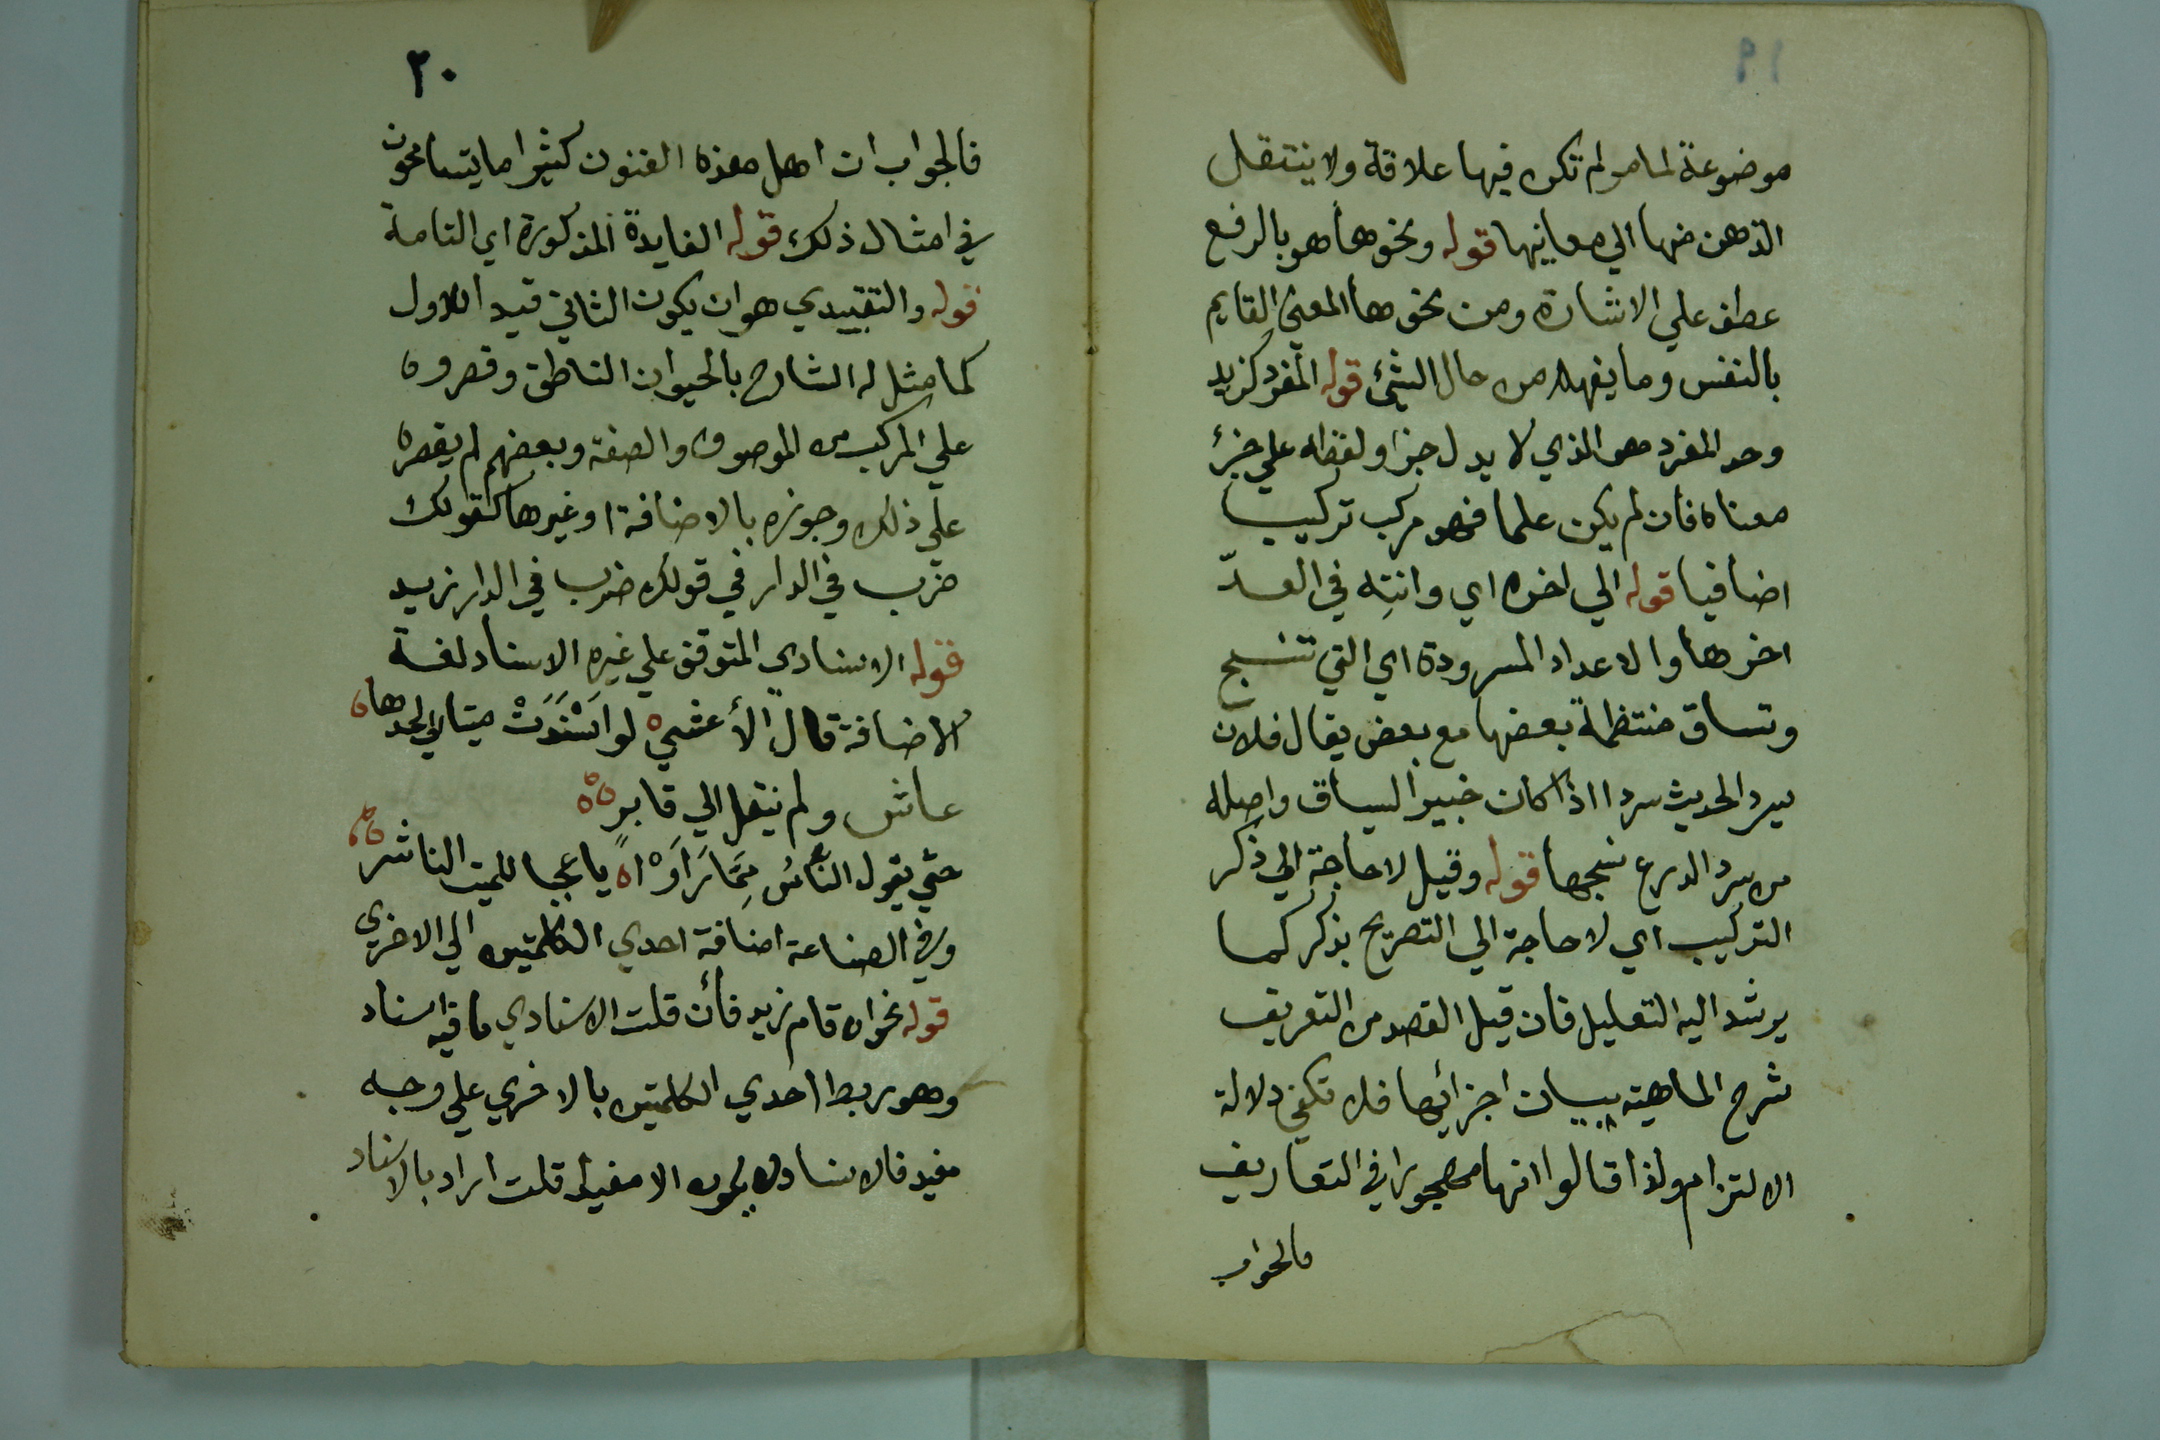 ١٩
موضوعة لما هو لم تكن فيها علاقة ولا ينتقل
الذهن منها الي معانيها قوله ونحوها هو بالرفع
عطف علي الاشارة ومن نحوها المعني القايم
بالنفس وما يفهم من حال الشئ قوله المفرد كزيد
وحد المفرد هو الذي لا يدل جزا ولفظه علي جزئ
معناه فان لم يكن علما فهو مركب تركيبا
اضافيا قوله الي اخره اي وانته في العدّ
اخرها والاعداد المسرودة اي التي تنسج
وتساق منتظمة بعضها مع بعض يقال فلان
يسرد الحديث سردا اذا كان خبير السياق واصله
من سرد الدرع نسجها قوله وقيل لا حاجة الي ذكر
التركيب اي لا حاجة الي التصريح بذكر كما
يرشد اليه التعليل فان قيل القصد من التعريف
شرح الماهية ببيان اجزائها فلا تكفي دلالة
الالتزام ولذا قالوا انها مهجورا في التعاريف
فالجواب
٢٠
فالجواب ان اهل هذه الفنون كثيرا ما يتسامحون
في امثال ذلك قوله الفايدة المذكورة اي التامة
قوله والتقييدي هو ان يكون الثاني قيد اللاول
كما مثل له الشارح بالحيوان الناطق وقصروه
علي المركب من الموصوف والصفة وبعضهم لم يقصره
علي ذلك وجوزه بالاضافة او غيرها كقولك
ضرب في الدار في قولك ضرب في الدار زيد
قوله الاسنادي المتوقف علي غيره الاسناد لغة
الاضافة قال الأعشي لو اَسْنَدَتْ ميتا الي نحدها
عاش ولم ينقل الي قابرٍ
حتي يقول الناسُ مِمَّا رَاَوْا يا عجبا للميت الناشر
وفي الصناعة اضافة احدي الكلمتين الي الاخري
قوله نحوان قام زيد فأن قلت الاسنادي ما فيه اسناد
وهو ربط احدي الكلمتين بالاخري علي وجه
مفيد فالاسناد لا يكون الا مفيدا قلت اراد بالاسناد